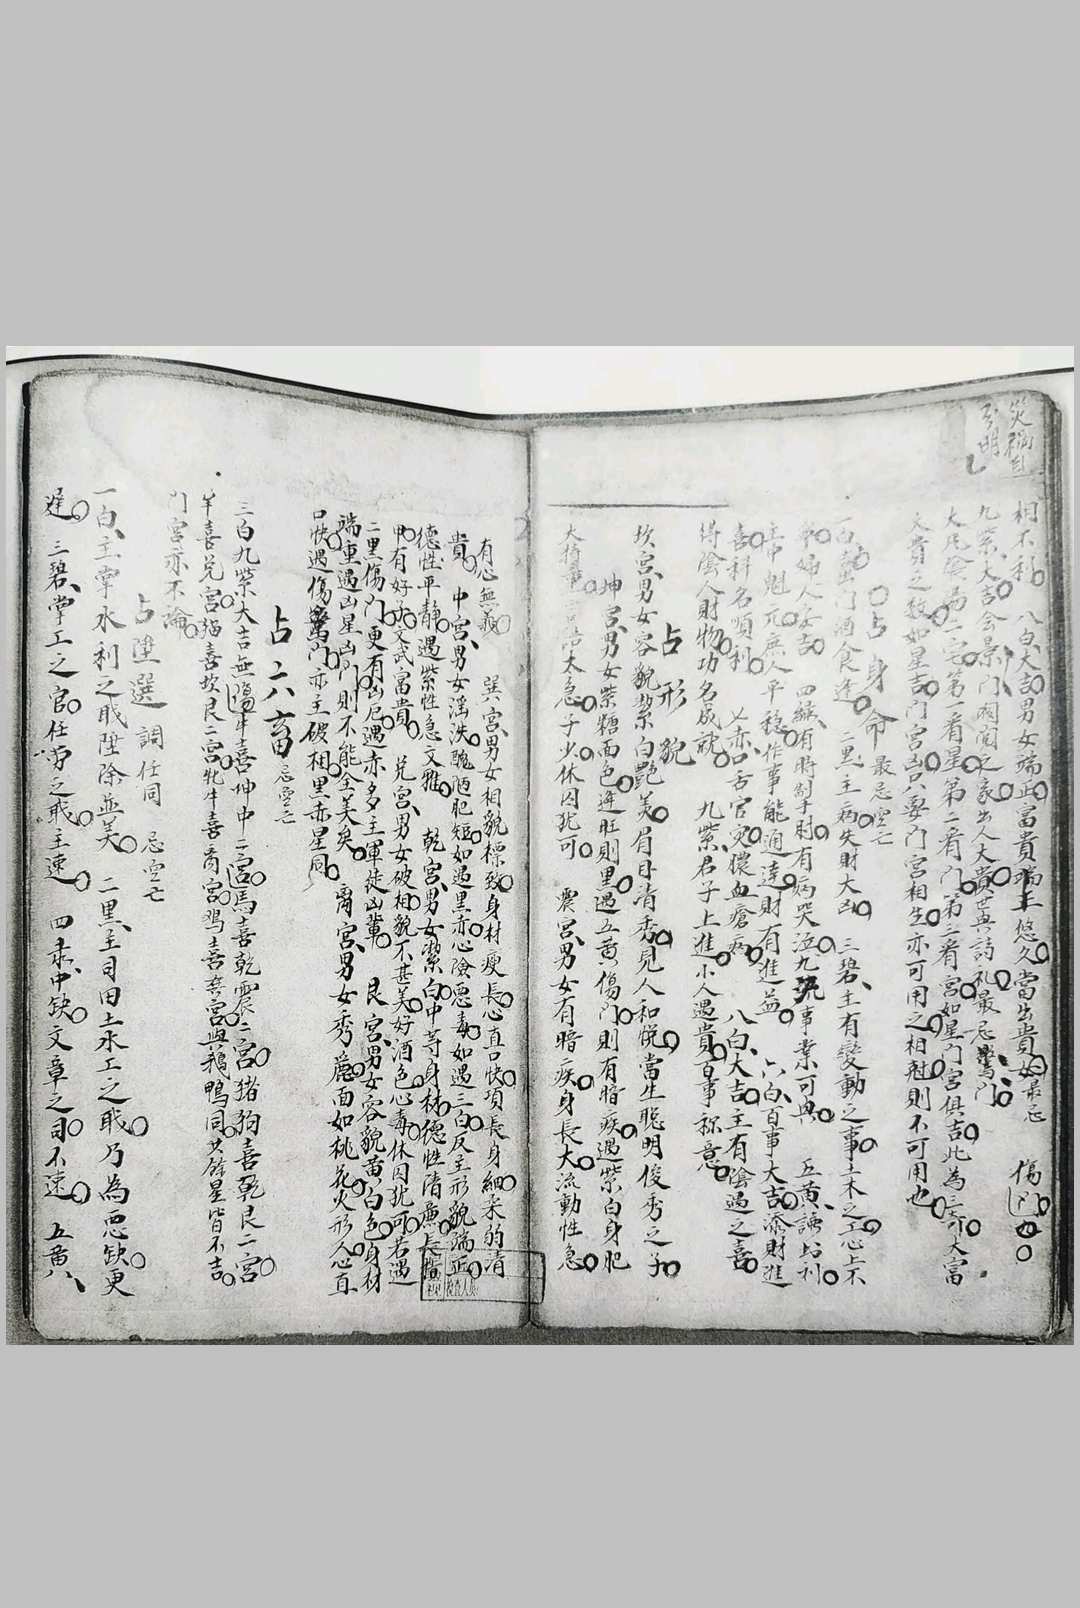 相不利。八白大吉。男女端正富貴。端主悠久。當出貴女。最忌傷門。
九紫大吉。會景門開闔之家。出人大貴。世與詩礼。最忌驚門。
大凡陰陽二宅。第一看星。第二看門。第三看宮。如星門宮俱吉。此為三奇。大富
大貴之数。如星吉。門宮凶。只要門宮相生。亦可用之。相尅則不可用也。
占身命 最忌空亡
一白 門酒食逢。二黑主病失財大凶。三碧主有變動之事。土木之工。心上不
寧。婦人家吉。四綠有時制肘。有病哭泣。九流事業可興。五黃諸占利
主中魁元。庶人平穩。作事能通達。財有進益。六白百事大吉。添財進
喜。科名順利。七赤口舌官灾。膿血瘡病。八白大吉。主有陰遇之喜
得陰人財物。功名成就。九紫君子上進。小人遇貴。百事称意。
占形貌
坎宮男女容貌紫白艷美。眉目清秀。見人和悅。當生聰明俊秀之子。
坤宮男女紫糖面色。逢旺則黑。遇五黄傷門。則有暗疾。遇紫白身肥
大 言語太急。子少。休囚犹可。震宮男女有暗疾。身長大。流動性急。
有心無 。巽宮男女相貌標致。身材瘦長。心直口快。項長身細。柔的清
貴。中宮男女淫泆。醜陋肥短。如遇黑赤。心險惡毒。如遇三白。反主形貌端正。
德性平静。遇紫性急文雅。乾宮男女潔白。中等身材。德性清廉。
中有好子。文武富貴。兑宮男女破相。貌不甚美。好酒色。心毒。休囚犹可。若遇
二黑傷門。更有凶厄。遇赤多主軍徒凶輩。艮宮男女容貌黄白色。身材
端重。遇凶星凶門。則不能全美矣。离宮男女秀 。面如桃花。火形人心直
口快。遇傷驚門。亦主破相。黑赤星同。
占六畜 忌空亡
三白九紫大吉無傷。牛喜坤中二宮。馬喜乾震二宮。猪狗喜乾艮二宮。
羊喜兑宮。猫喜坎艮二宮。牝牛喜离宮。鸡喜巽宮。與鵝鴨同。其餘星皆不吉。
門宮亦不論。
占陞選 調任同 忌空亡
一白主掌水利之职。陞除並美。二黑主司田土水工之职。乃為惡缺。更
遲。三碧掌工之官。任劳之职。主速。四录中缺。文章之司。不速。五黄八